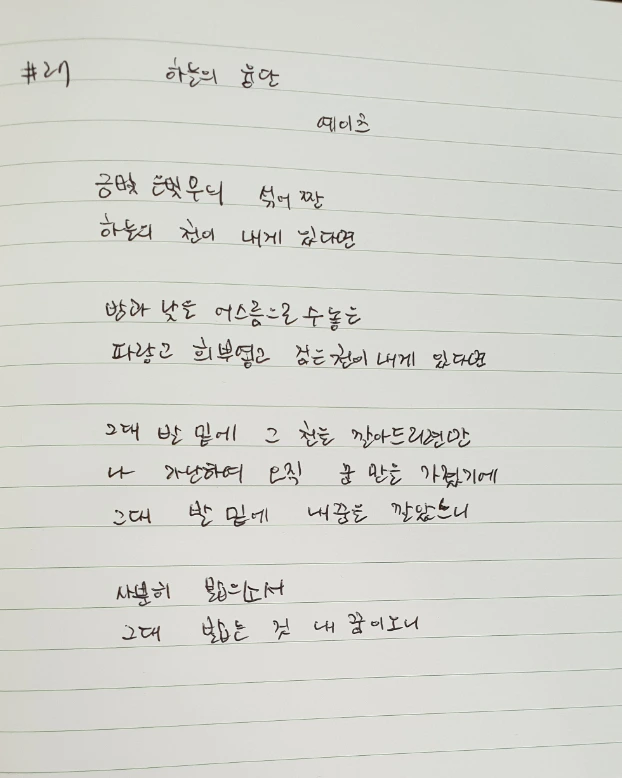 #27 하늘의 융단
예이츠
금빛 은빛 무늬 섞어 짠
하늘의 천이 내게 있다면
밤과 낮을 어스름으로 수놓은
파랗고 희부옇고 검은 천이 내게 있다면
그대 발 밑에 그 천을 깔아드리련만
나 가난하여 오직 꿈 만을 가졌기에
그대 발 밑에 내꿈을 깔았으니
사뿐히 밟으소서
그대 밟는 것 내 꿈이오니